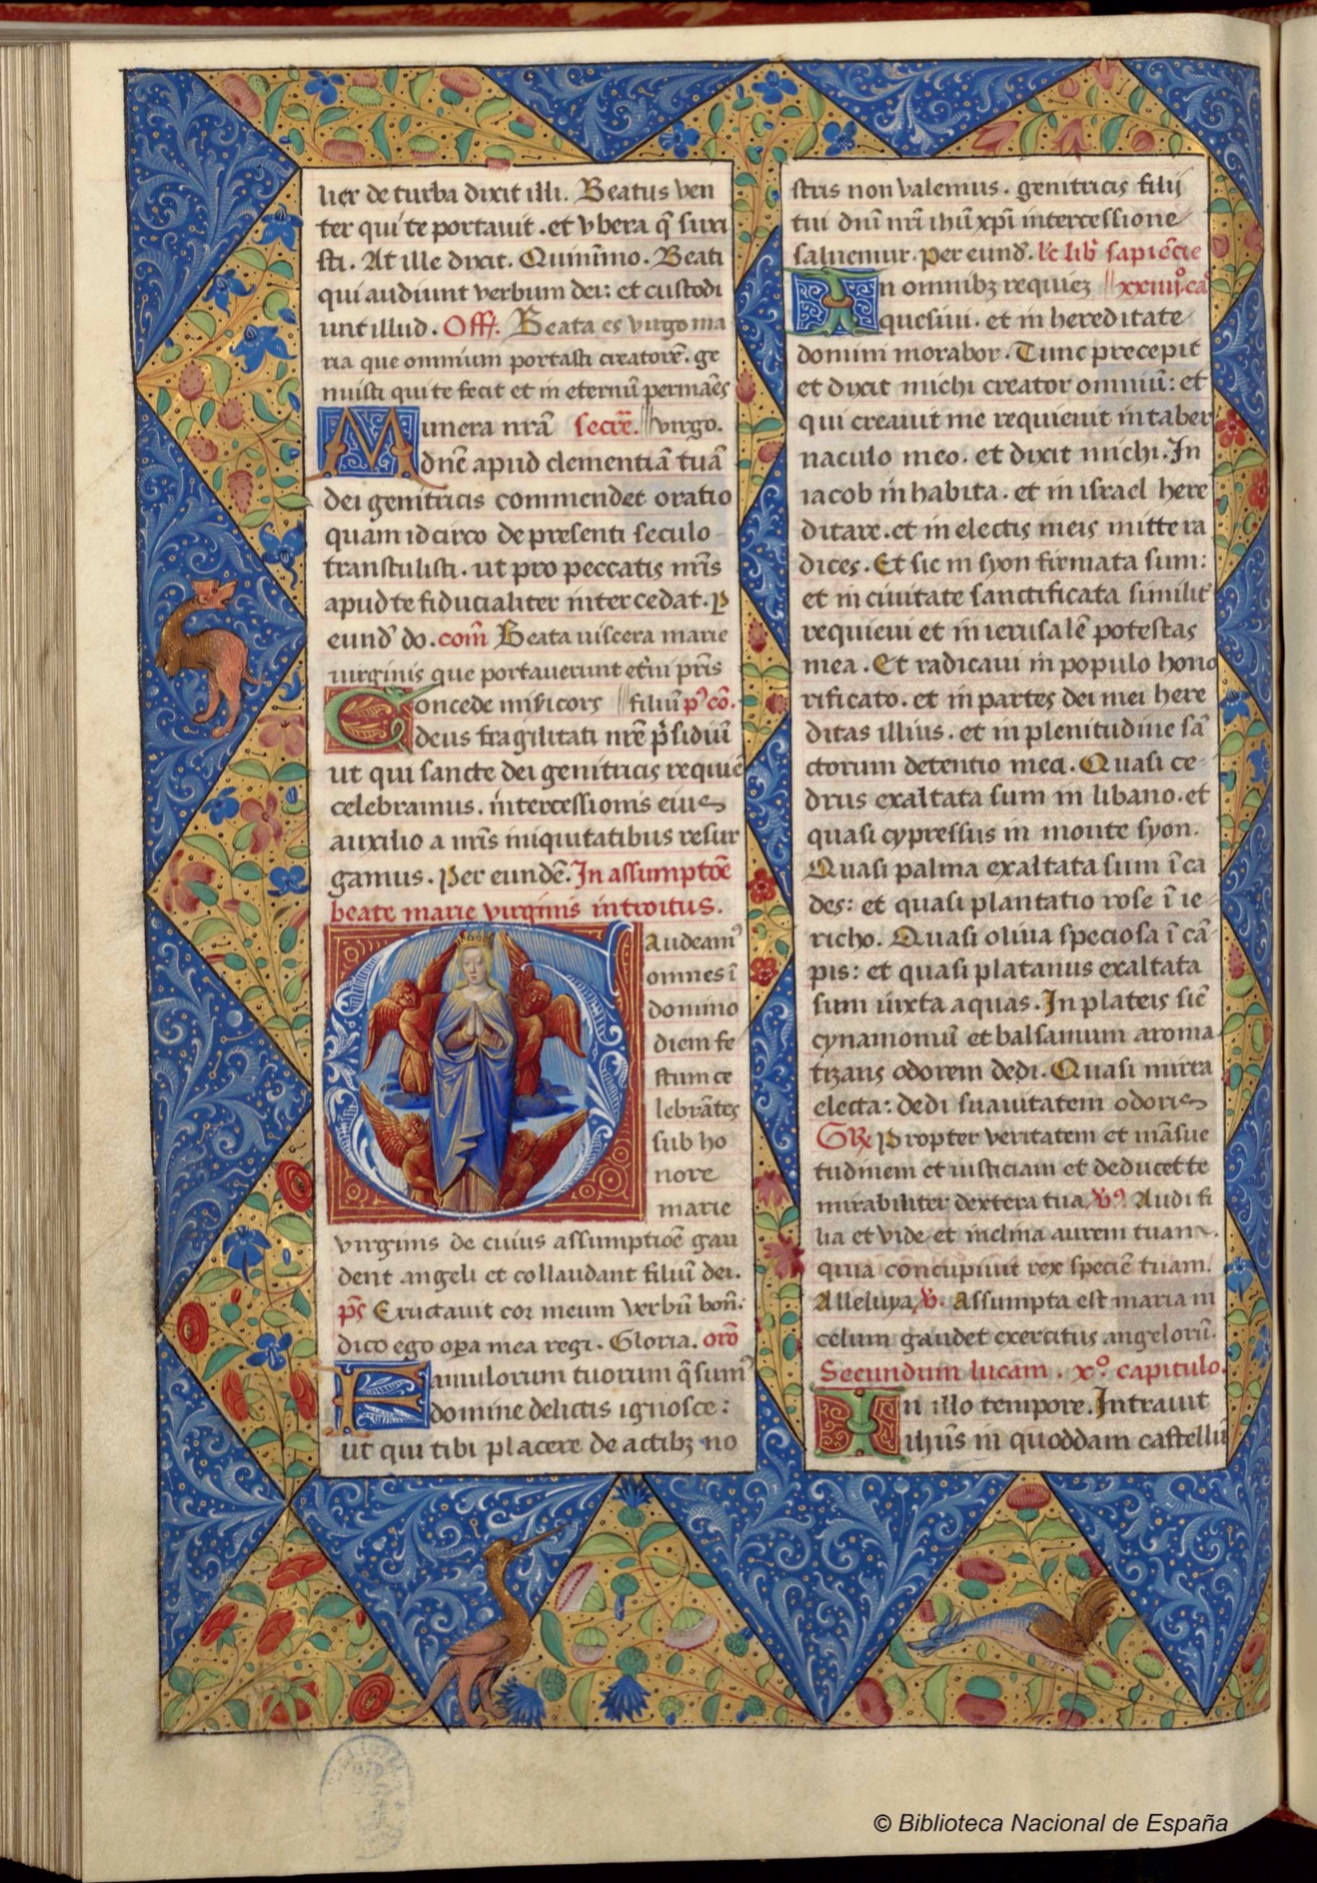 lier de turba dixit illi. Beatus ven
ter qui te portauit. et vbera q̃ suxi
sti. At ille dixit. Quinĩmo. Beati
qui audiunt verbum dei: et custodi
unt illud. Off. Beata es virgo ma
ria que omnium portasti creatorẽ. ge
nuisti qui te fecit et in eternũ permães
Munera nrã secrẽ. virgo.
dnẽ apud clementiã tuã
dei genitricis commendet oratio
quam idcirco de presenti seculo
transtulisti. ut pro peccatis nrĩs
apud te fiducialiter intercedat. ꝑ
eund' do. com̃ Beata viscera marie
virginis que portauerunt etñi prĩs
Concede mis̃icors filiũ p' cõ.
deus fragilitati nrẽ p̃sidiũ
ut qui sancte dei genitricis requiẽ
celebramus. intercessionis eius
auxilio a nrĩs iniquitatibus resur
gamus. Per eundẽ. In assumptõe
beate marie virginis introitus.
Gaudeam'
omnes ĩ
domino
diem fe
stum ce
lebrãtes
sub ho
nore
marie
virginis de cuius assumptiõe gau
dent angeli et collaudant filiũ dei.
p̃s Eructauit cor meum verbũ bon̄:
dico ego oꝑa mea regi. Gloria. orõ
Famulorum tuorum q̃sum'
domine delictis ignosce:
ut qui tibi placere de actibꝫ no
stris non valemus. genitricis filij
tui dnĩ nrĩ ihũ xpĩ intercessione
saluemur. Per eund'. lc̃ lib' sapiẽcie
In omnibꝫ requiez xxiiijº. caº
quesiui. et in hereditate
domini morabor. Tunc precepit
et dixit michi creator omniũ: et
qui creauit me requieuit in taber
naculo meo. et dixit michi. In
iacob inhabita. et in israel here
ditare. et in electis meis mitte ra
dices. Et sic in syon firmata sum:
et in ciuitate sanctificata similit'
requieui et in ierusalẽ potestas
mea. Et radicaui in populo hono
rificato. et in partes dei mei here
ditas illius. et in plenitudine sã
ctorum detentio mea. Quasi ce
drus exaltata sum in libano. et
quasi cypressus in monte syon.
Quasi palma exaltata sum ĩ ca
des: et quasi plantatio rose ĩ ie
richo. Quasi oliua speciosa ĩ cã
pis: et quasi platanus exaltata
sum iuxta aquas. In plateis sic̃
cynamomũ et balsamum aroma
tizans odorem dedi. Quasi mirra
electa: dedi suauitatem odoris
Gꝶ Propter veritatem et mãsue
tudinem et iusticiam et deducet te
mirabiliter dextera tua. v' Audi fi
lia et vide et inclina aurem tuam.
quia concupiuit rex speciẽ tuam.
Alleluya. v. Assumpta est maria in
celum gaudet exercitus angelorũ.
Secundum lucam. xº. capitulo.
In illo tempore. Intrauit
ihũs in quoddam castellũ
© Biblioteca Nacional de España